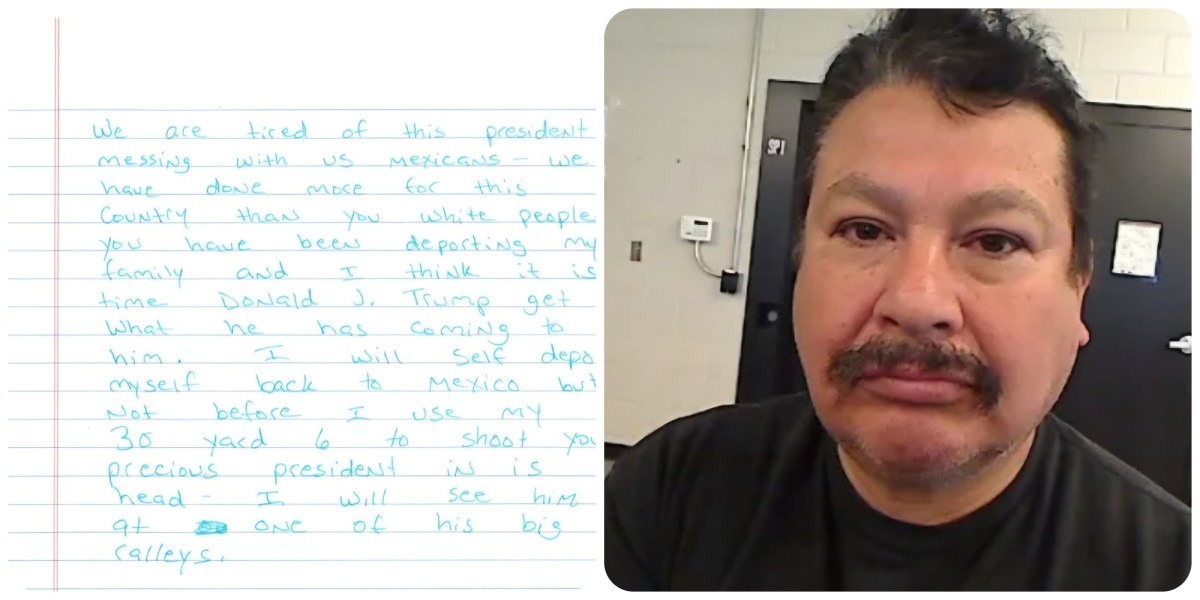 We are tired of this president
messing with us mexicans - we
have done more for this
Country than you white people
you have been deporting my
family and I think it is
time Donald J. Trump get
What he has coming to
him. I will self depo
myself back to mexico but
Not before I use my
30 yard 6 to shoot you
precious president in is
head - I will see him
at one of his big
ralleys.
SP1